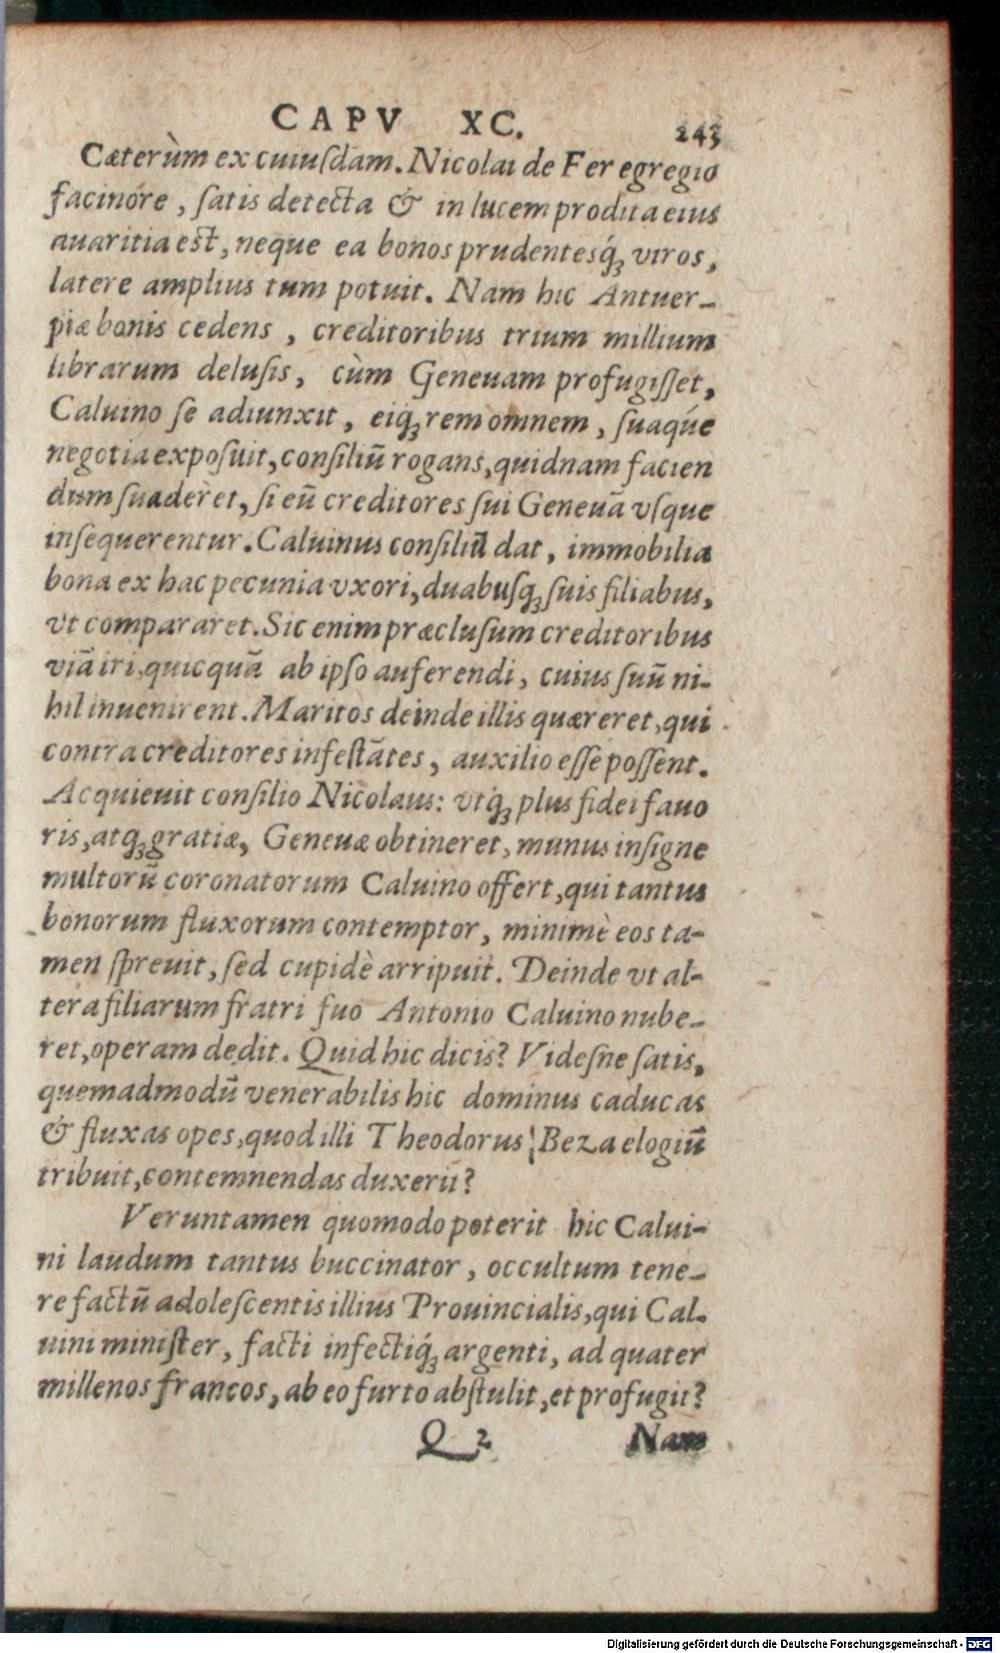 CAPV XC. 243
Cæterùm ex cuiuſdam. Nicolai de Fer egregio
facinóre, ſatis detecta & in lucem prodita eius
auaritia est, neque ea bonos prudentesq́ꝫ viros,
latere amplius tum potuit. Nam hic Antuer-
piæ bonis cedens, creditoribus trium millium
librarum deluſis, cùm Geneuam profugiſſet,
Caluino ſe adiunxit, eiq́ꝫ rem omnem, ſuaq́ue
negotia expoſuit, conſiliū rogans, quidnam facien
dum ſuaderet, ſi eū creditores ſui Geneuā vſque
inſequerentur. Caluinus conſiliū dat, immobilia
bona ex hac pecunia vxori, duabuſq́ꝫ ſuis filiabus,
vt compararet. Sic enim præcluſum creditoribus
viā iri, quicquā ab ipſo auferendi, cuius ſuū ni-
hil inuenirent. Maritos deinde illis quæreret, qui
contra creditores infeſtātes, auxilio eſſe poſſent.
Acquieuit conſilio Nicolaus: vtq́ꝫ plus fidei fauo
ris, atq́ꝫ gratiæ, Geneuæ obtineret, munus inſigne
multorū coronatorum Caluino offert, qui tantus
bonorum fluxorum contemptor, minimè eos ta-
men ſpreuit, ſed cupidè arripuit. Deinde vt al-
tera filiarum fratri ſuo Antonio Caluino nube-
ret, operam dedit. Quid hic dicis? Videſne ſatis,
quemadmodū venerabilis hic dominus caducas
& fluxas opes, quod illi Theodorus Beza elogiū
tribuit, contemnendas duxerit?
Veruntamen quomodo poterit hic Calui-
ni laudum tantus buccinator, occultum tene-
re factū adoleſcentis illius Prouincialis, qui Cal-
uini miniſter, facti infectiq́ꝫ argenti, ad quater
millenos francos, ab eo furto abſtulit, et profugit?
Q 2 Nam
Digitalisierung gefördert durch die Deutsche Forschungsgemeinschaft - DFG